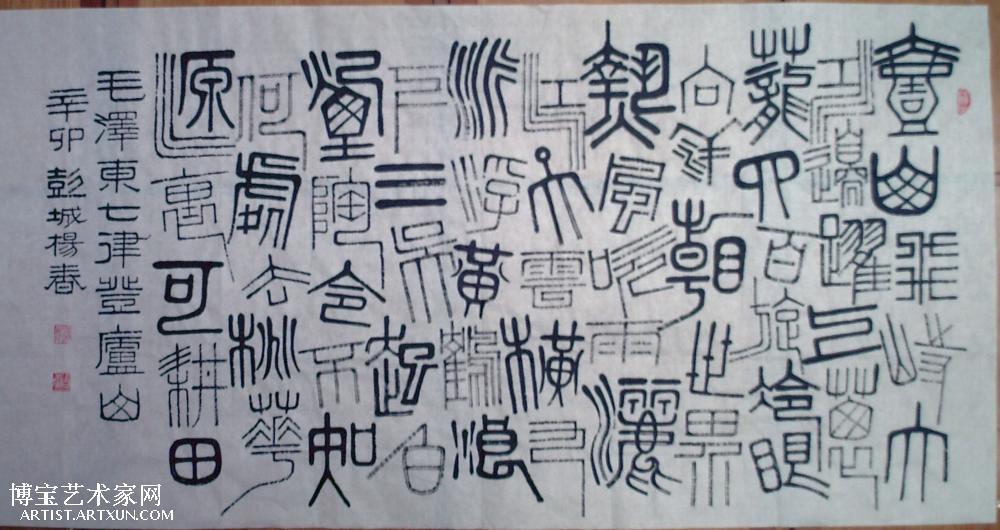 壹山飛峙大
江邊躍上蔥
蘢四百旋冷眼
向洋看世界
熱風吹雨灑
江天雲橫九
派浮黃鶴浪
下三吳起白
煙陶令不知
何處去桃華
源裏可耕田
毛澤東七律登廬山
辛卯彭城楊春
博宝艺术家网
ARTIST.ARTXUN.COM